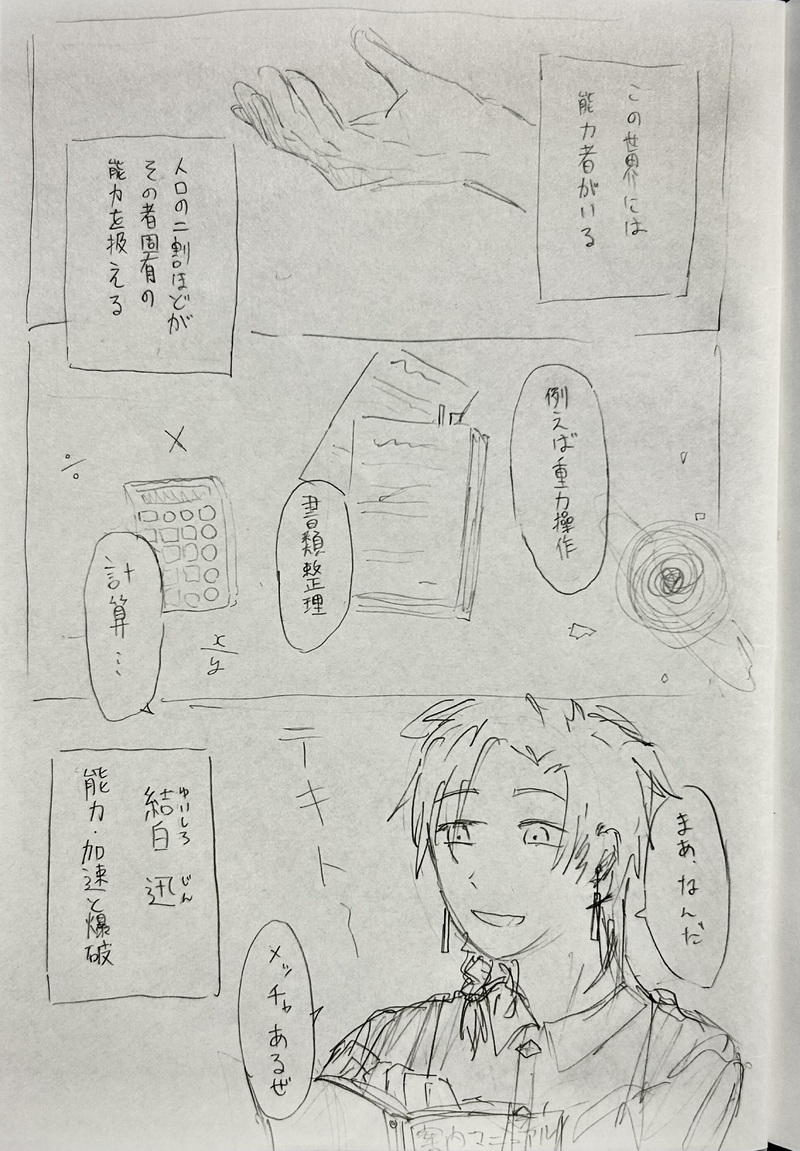 この世界には
能力者がいる
人口の二割ほどが
その者固有の
能力を扱える
例えば重力操作
書類整理
計算…
×
÷
x/y
まあ、なんだ
テキトー
メッチャあるぜ
結白 迅
ゆいしろ じん
能力・加速と爆破
案内マニュアル